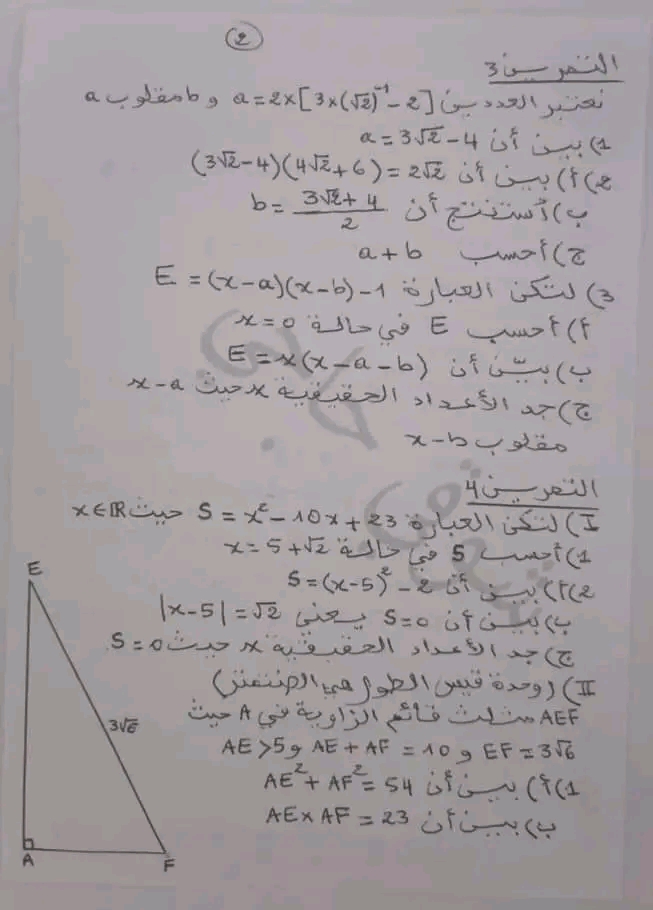 2
التمرين 3
نعتبر العددين a = 2×[3×(√2)⁻¹ - 2] و b مقلوب a
1) بين أن a = 3√2 - 4
2) أ) بين أن (3√2 - 4)(4√2 + 6) = 2√2
ب) أستنتج أن b = (3√2 + 4)/2
ج) أحسب a + b
3) لتكن العبارة E = (x - a)(x - b) - 1
أ) أحسب E في حالة x = 0
ب) بيّن أن E = x(x - a - b)
ج) جد الأعداد الحقيقية x حيث x - a
مقلوب x - b
التمرين 4
I) لتكن العبارة S = x² - 10x + 23 حيث x ∈ ℝ
1) أحسب S في حالة x = 5 + √2
2) أ) بين أن S = (x - 5)² - 2
ب) بين أن S = 0 يعني |x - 5| = √2
ج) جد الأعداد الحقيقية x حيث S = 0
II) (وحدة قيس الطول هي الصنتمتر)
AEF مثلث قائم الزاوية في A حيث
EF = 3√6 و AE + AF = 10 و AE > 5
1) أ) بين أن AE² + AF² = 54
ب) بين أن AE × AF = 23
E
3√6
A
F
شوقي